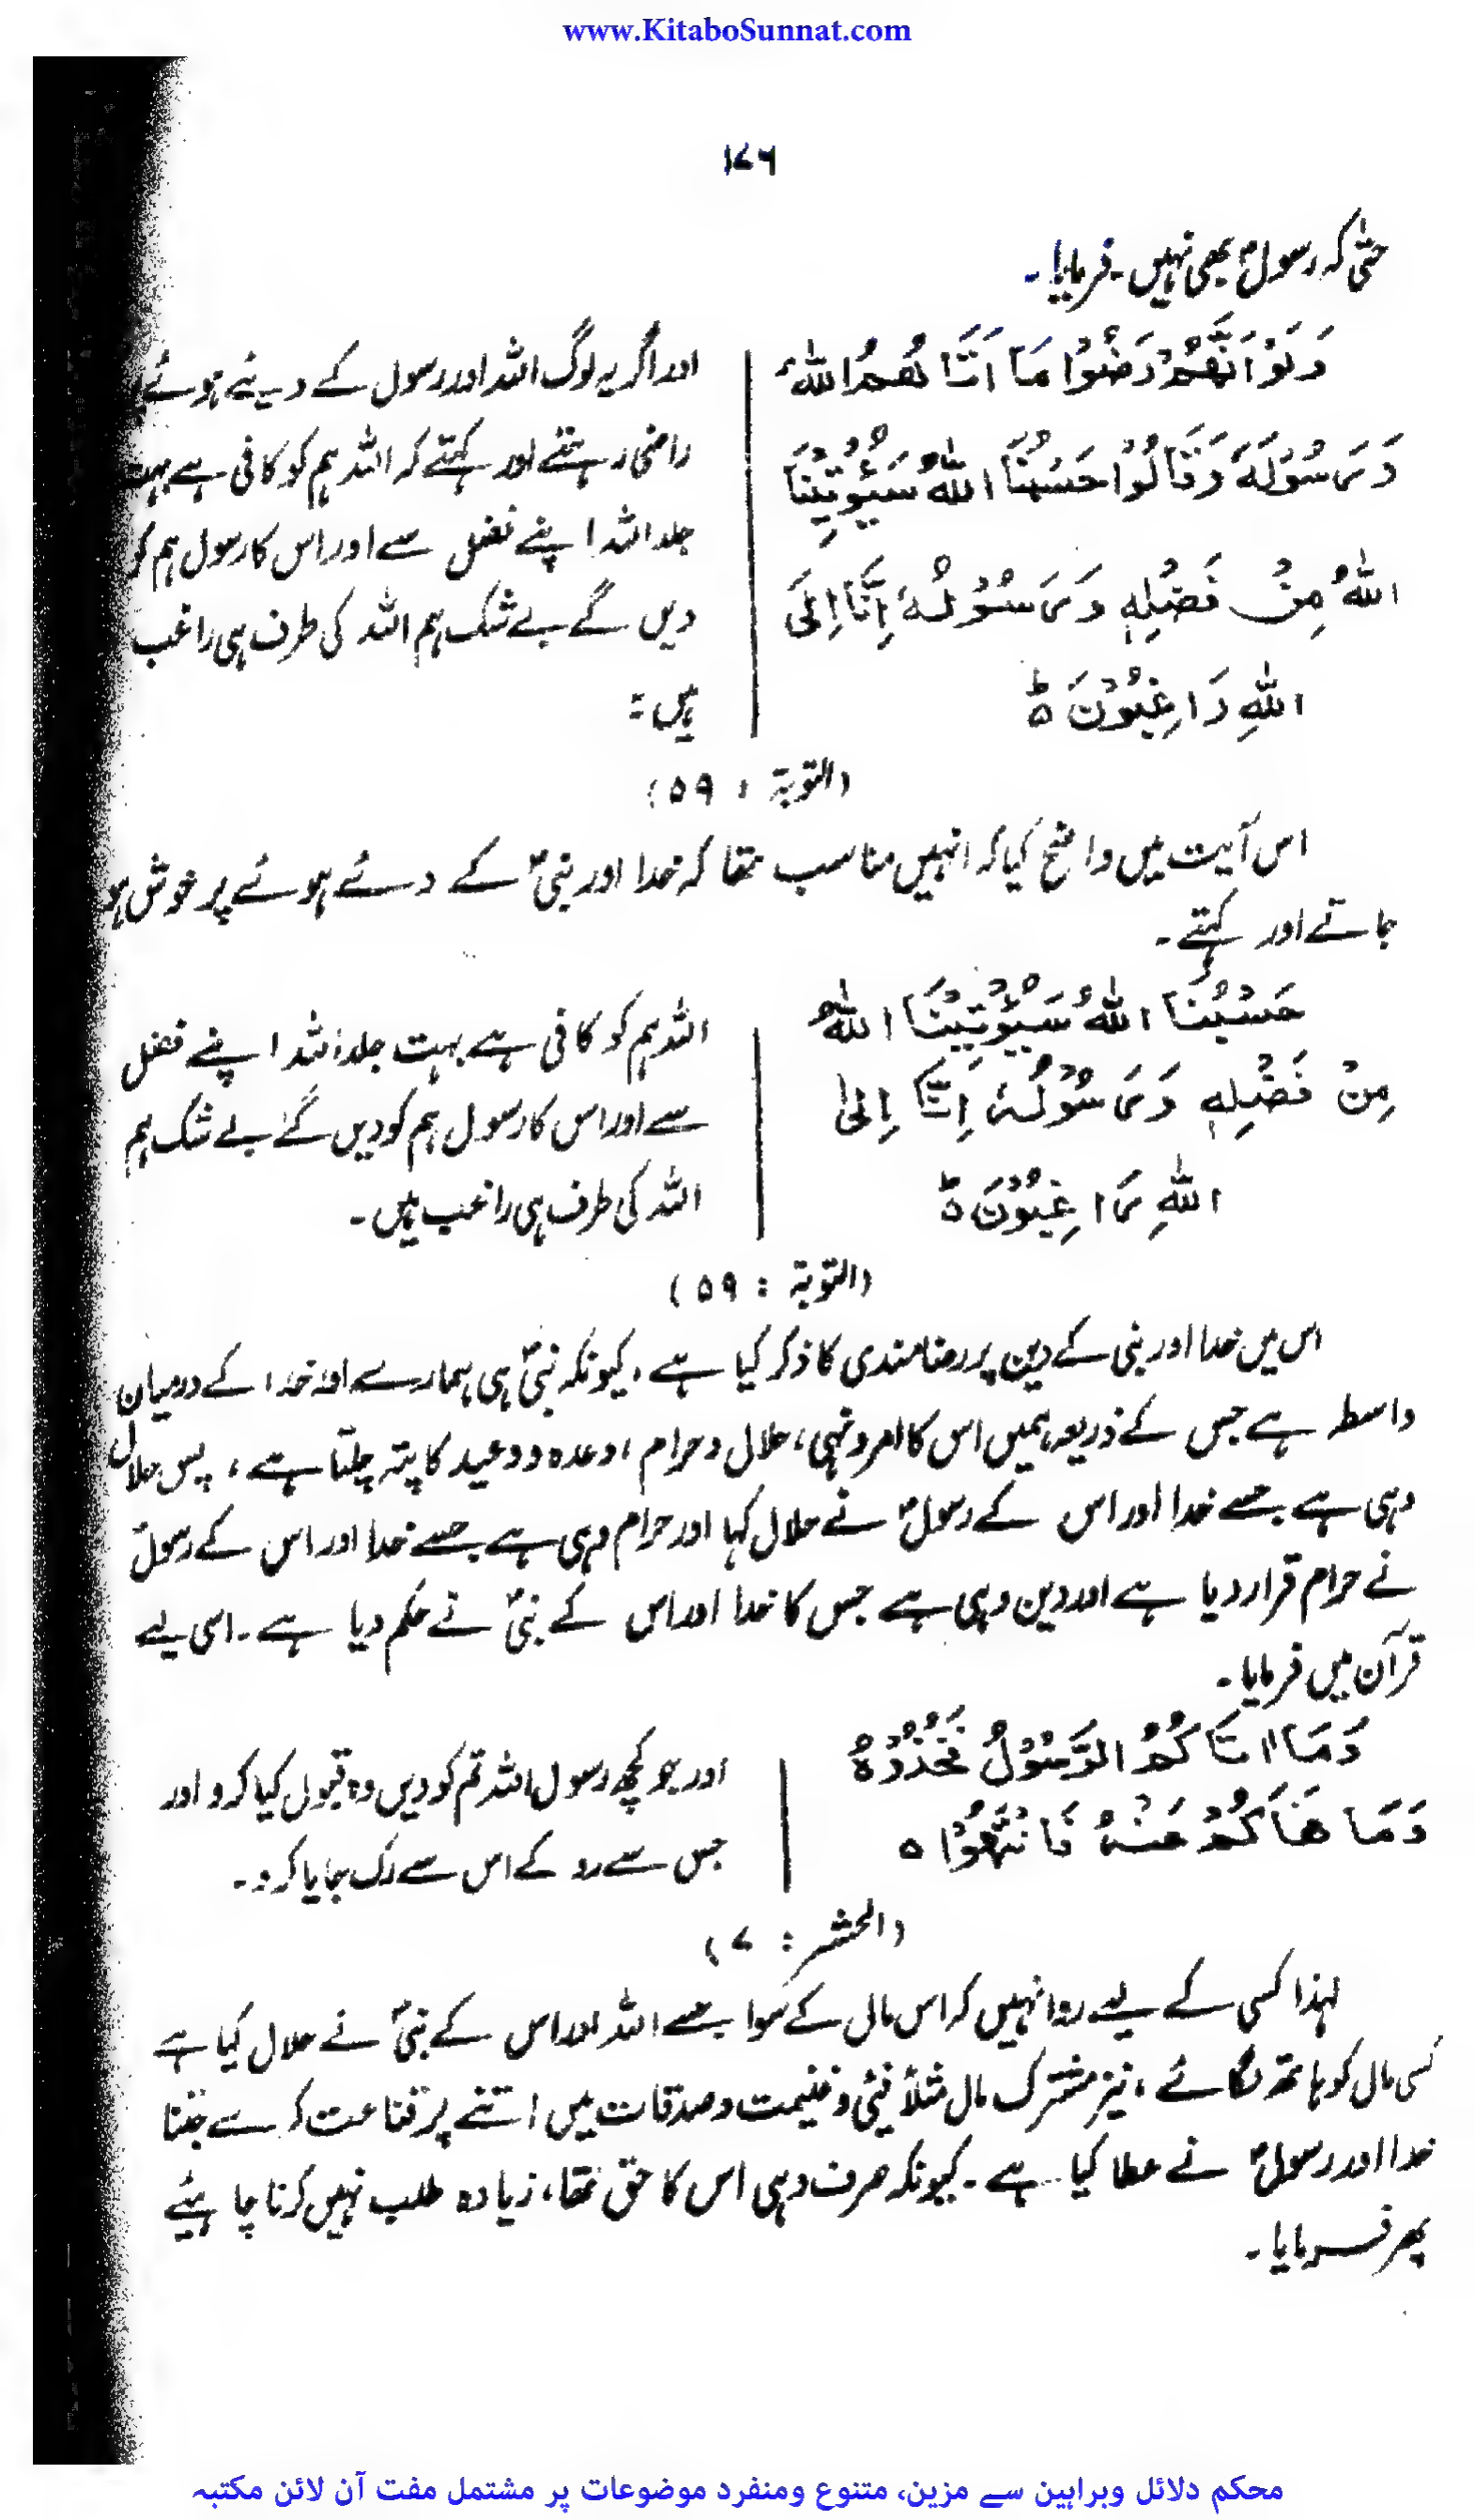 www.KitaboSunnat.com
۱۷۶
حتیٰ کہ رسولؐ بھی نہیں۔ فرمایا۔
وَلَوْ اَنَّهُمْ رَضُوْا مَا اٰتَاهُمُ اللّٰهُ
وَرَسُوْلُهٗ وَقَالُوْا حَسْبُنَا اللّٰهُ سَيُؤْتِيْنَا
اللّٰهُ مِنْ فَضْلِهٖ وَرَسُوْلُهٗ اِنَّا اِلَى
اللّٰهِ رَاغِبُوْنَ ط
اور اگر یہ لوگ اللہ اور رسول کے دیئے ہوئے
راضی رہتے اور کہتے کہ اللہ ہم کو کافی ہے بہت
جلد اللہ اپنے فضل سے اور اس کا رسول ہم کو
دیں گے بے شک ہم اللہ کی طرف ہی راغب
ہیں:
(التوبۃ : ۵۹)
اس آیت میں واضح کیا کہ انہیں مناسب تھا کہ خدا اور نبیؐ کے دئے ہوئے پر خوش ہو
جاتے اور کہتے۔
حَسْبُنَا اللّٰهُ سَيُؤْتِيْنَا اللّٰهُ
مِنْ فَضْلِهٖ وَرَسُوْلُهٗ اِنَّا اِلَى
اللّٰهِ رَاغِبُوْنَ ط
اللہ ہم کو کافی ہے بہت جلد اللہ اپنے فضل
سے اور اس کا رسول ہم کو دیں گے بے شک ہم
اللہ کی طرف ہی راغب ہیں۔
(التوبۃ : ۵۹)
اس میں خدا اور نبی کے دین پر رضامندی کا ذکر کیا ہے، کیونکہ نبیؐ ہی ہمارے اور خدا کے درمیان
واسطہ ہے جس کے ذریعہ ہمیں اس کا امر و نہی، حلال و حرام، وعدہ و وعید کا پتہ چلتا ہے، پس حلال
وہی ہے جسے خدا اور اس کے رسولؐ نے حلال کہا اور حرام وہی ہے جسے خدا اور اس کے رسولؐ
نے حرام قرار دیا ہے اور دین وہی ہے جس کا خدا اور اس کے نبیؐ نے حکم دیا ہے۔ اسی لیے
قرآن میں فرمایا۔
وَمَا اٰتَاكُمُ الرَّسُوْلُ فَخُذُوْهُ
وَمَا نَهَاكُمْ عَنْهُ فَانْتَهُوْا ہ
اور جو کچھ رسول اللہ تم کو دیں وہ قبول کیا کرو اور
جس سے رو کے اس سے رک جایا کرو۔
(الحشر : ۷)
لہذا کسی کے لیے روا نہیں کہ اس مال کے سوا جسے اللہ اور اس کے نبیؐ نے حلال کیا ہے
کسی مال کو ہاتھ لگائے، نیز مشترک مال مثلاً فیٔ و غنیمت و صدقات میں اتنے پر قناعت کرے جتنا
خدا اور رسولؐ نے عطا کیا ہے۔ کیونکہ صرف وہی اس کا حق تھا، زیادہ طلب نہیں کرنا چاہیئے
پھر فرمایا۔
محکم دلائل وبراہین سے مزین، متنوع ومنفرد موضوعات پر مشتمل مفت آن لائن مکتبہ